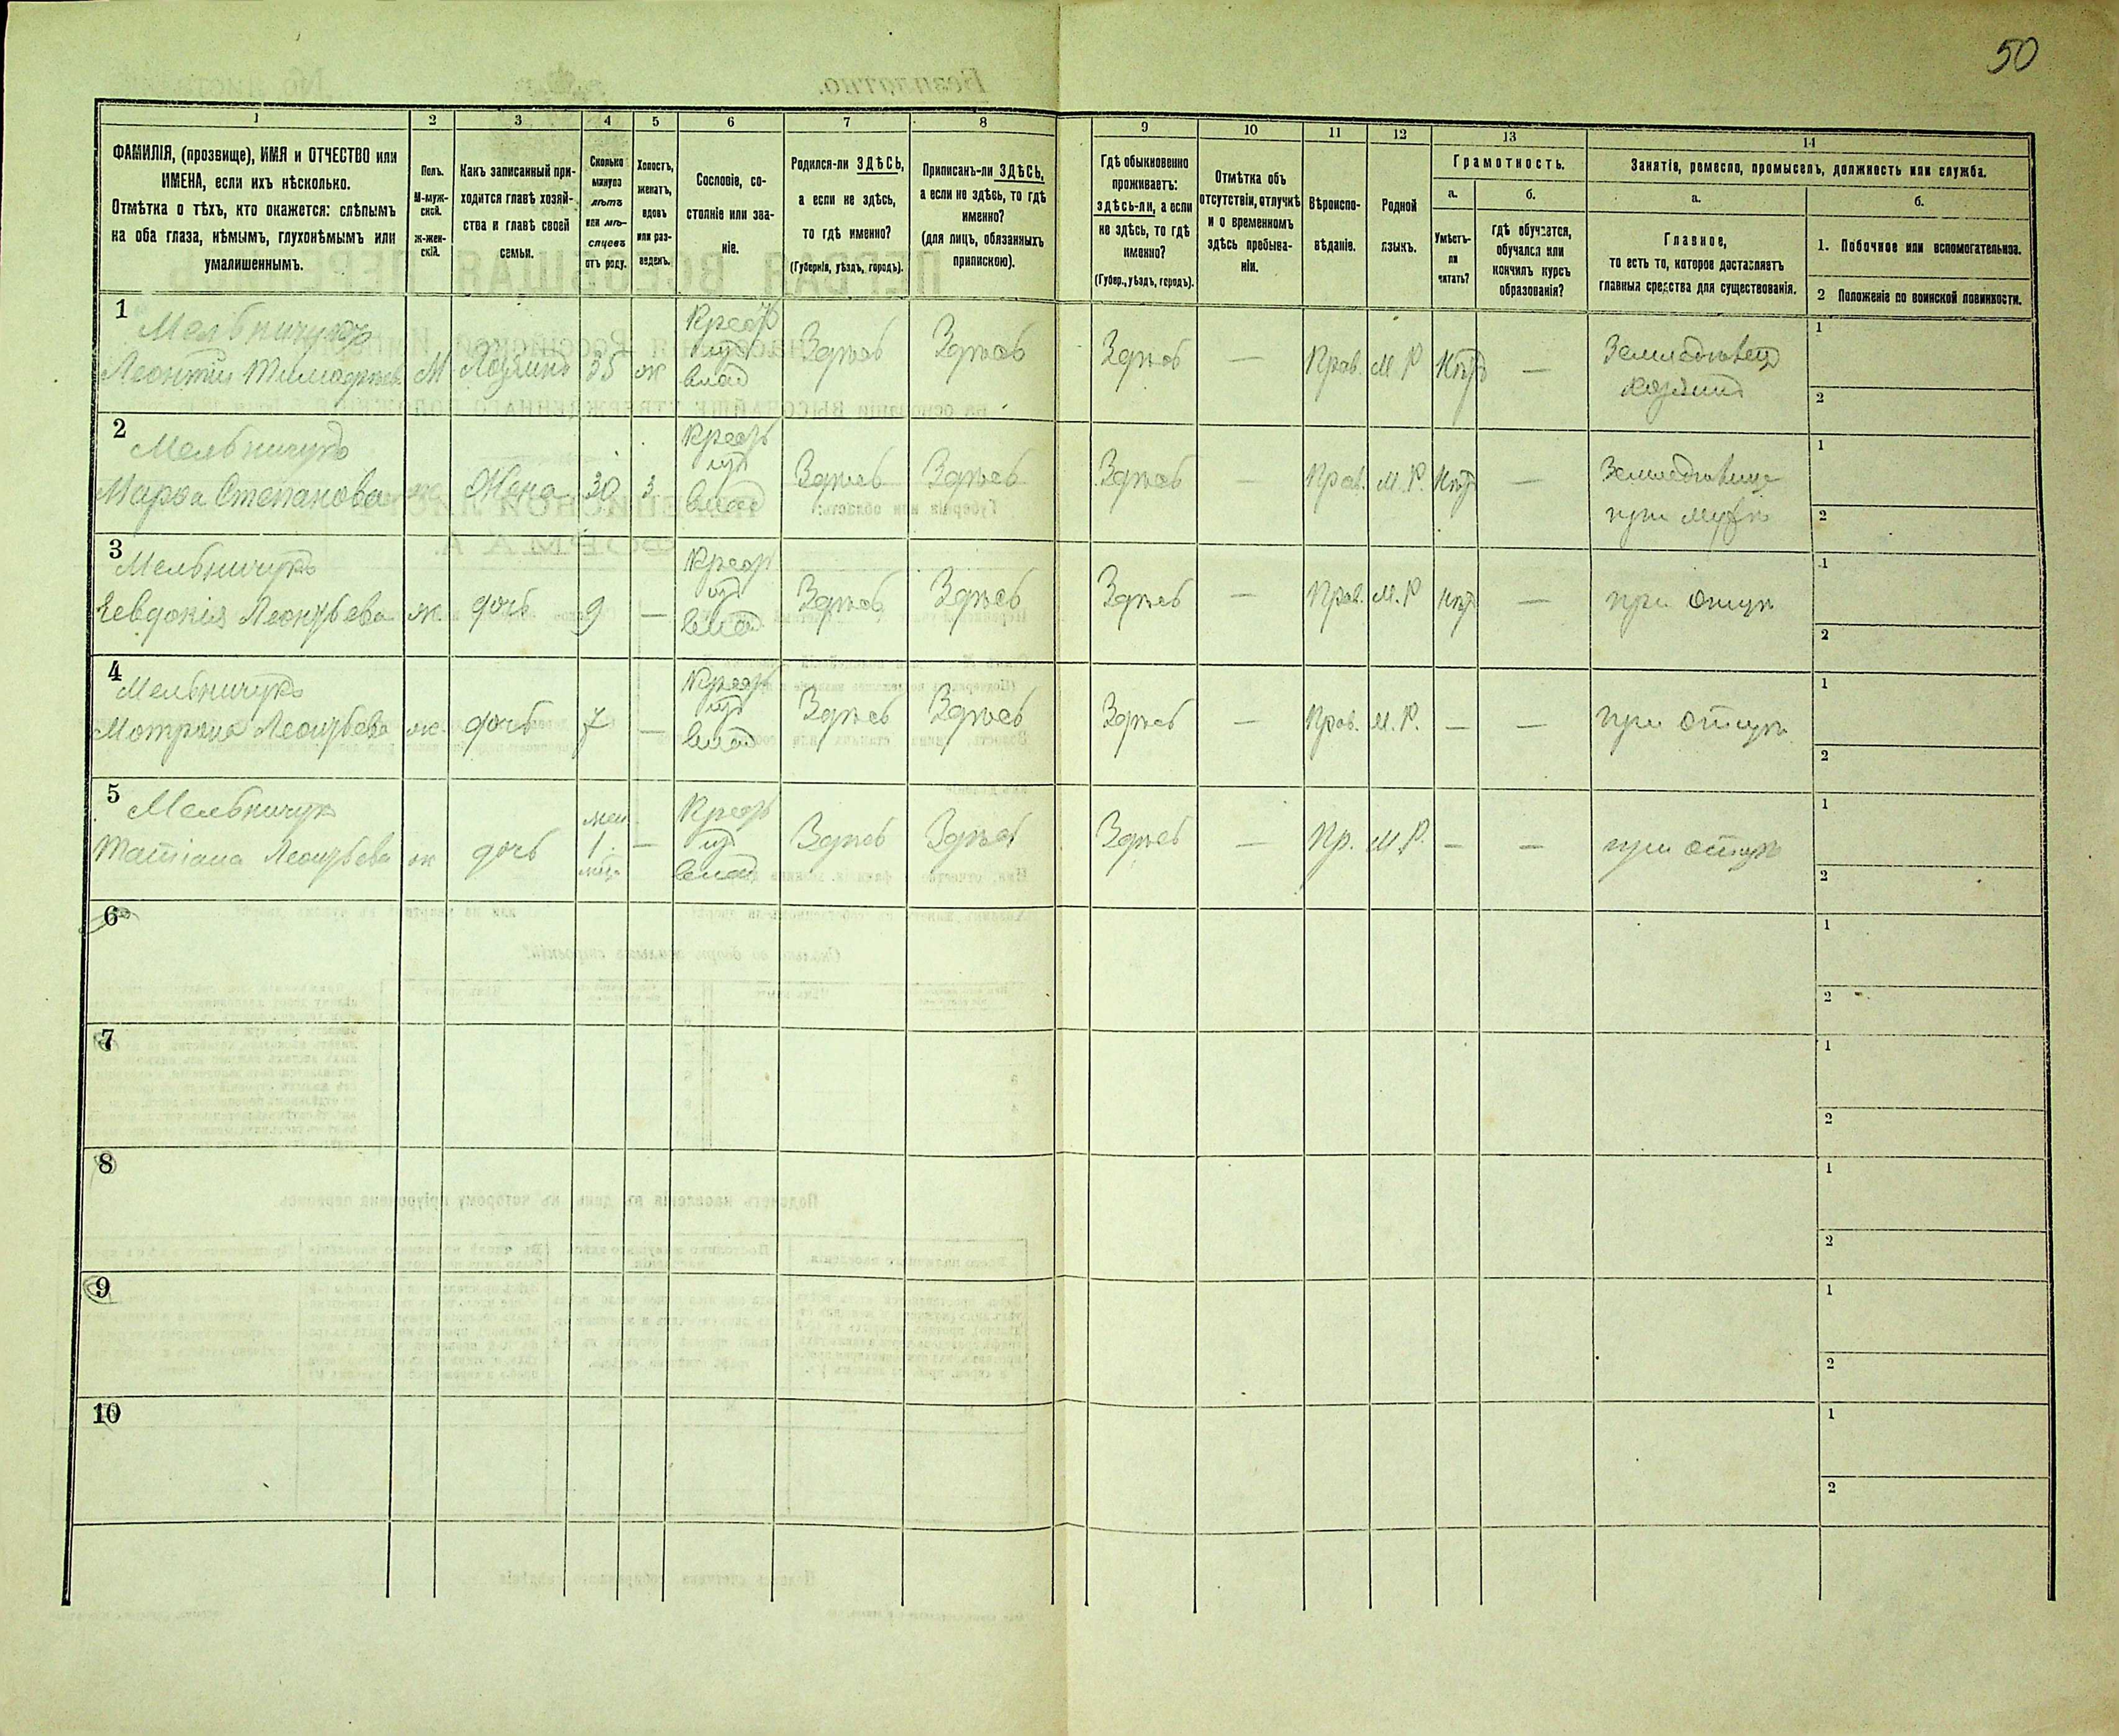 50
1
2
3
4
5
6
7
8
9
10
11
12
13
14
ФАМИЛІЯ, (прозвище), ИМЯ и ОТЧЕСТВО или
ИМЕНА, если ихъ нѣсколько.
Отмѣтка о тѣхъ, кто окажется: слѣпымъ
на оба глаза, нѣмымъ, глухонѣмымъ или
умалишеннымъ.
Полъ.
М-муж-
ской.
Ж-жен-
скій.
Какъ записанный при-
ходится главѣ хозяй-
ства и главѣ своей
семьи.
Сколько
минуло
лѣтъ
или мѣ-
сяцевъ
отъ роду.
Холостъ,
женатъ,
вдовъ
или раз-
веденъ.
Сословіе, со-
стояніе или зва-
ніе.
Родился-ли ЗДѢСЬ,
а если не здѣсь,
то гдѣ именно?
(Губернія, уѣздъ, городъ).
Приписанъ-ли ЗДѢСЬ,
а если не здѣсь, то гдѣ
именно?
(для лицъ, обязанныхъ
припискою).
Гдѣ обыкновенно
проживаетъ:
здѣсь-ли, а если
не здѣсь, то гдѣ
именно?
(Губер., уѣздъ, городъ).
Отмѣтка объ
отсутствіи, отлучкѣ
и о временномъ
здѣсь пребыва-
ніи.
Вѣроиспо-
вѣданіе.
Родной
языкъ.
Грамотность.
а.
Умѣетъ-
ли
читать?
б.
гдѣ обучается,
обучался или
кончилъ курсъ
образованія?
Занятія, ремесло, промыселъ, должность или служба.
а.
Главное,
то есть то, которое доставляетъ
главныя средства для существованія.
б.
1. Побочное или вспомогательное.
2 Положеніе по воинской повинности.
1
Мельничукъ
Леонтій Тимофѣев.
М
Хозяинъ
35
ж
Крест
изъ
влад
Здѣсь
Здѣсь
Здѣсь
—
Прав.
М.Р
Нѣтъ
—
Земледѣлецъ
хозяинъ
1
2
2
Мельничукъ
Марья Степанова
ж.
Жена
30
з.
Крест
изъ
влад
Здѣсь
Здѣсь
Здѣсь
—
Прав.
М.Р.
Нѣт
—
Земледѣлица
при мужѣ
1
2
3
Мельничукъ
Евдокія Леонтьева
ж.
дочь
9
—
Крест
изъ
влад
Здѣсь
Здѣсь
Здѣсь
—
Прав.
М.Р
нѣт
—
при отцѣ
1
2
4
Мельничукъ
Мотрона Леонтьева
ж.
дочь
7
—
Крест
изъ
влад
Здѣсь
Здѣсь
Здѣсь
—
Прав.
М.Р.
—
—
при отцѣ
1
2
5
Мельничук
Татіана Леонтьева
ж
дочь
мен.
1.
—
Крест
изъ
влад
Здѣсь
Здѣсь
Здѣсь
—
Пр.
М.Р.
—
—
при отцѣ
1
2
6
1
2
7
1
2
8
1
2
9
1
2
10
1
2